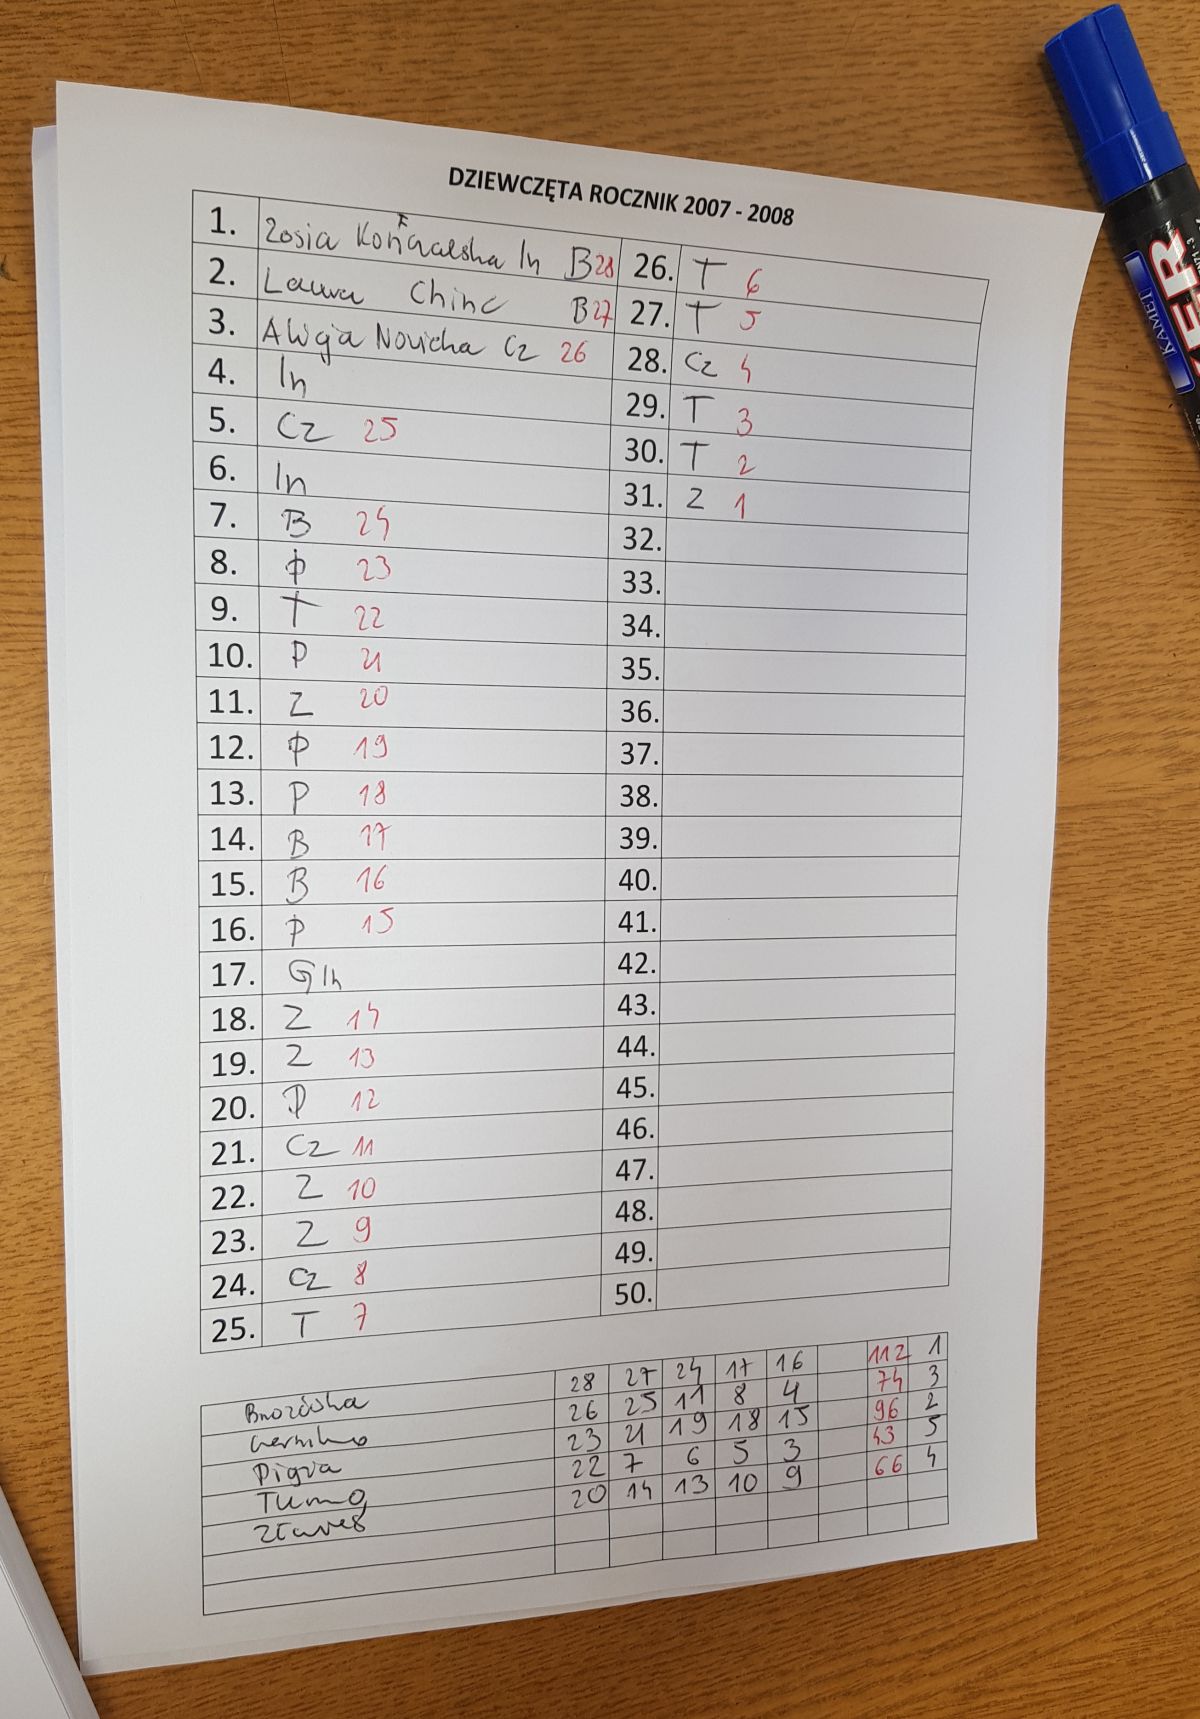 DZIEWCZĘTA ROCZNIK 2007 - 2008
1. Zosia In B 28
2. Laura Chinc B 27
3. Alicja Nowicka Cz 26
4. In
5. Cz 25
6. In
7. B 24
8. P 23
9. T 22
10. P 21
11. Z 20
12. P 19
13. P 18
14. B 17
15. B 16
16. P 15
17. G In
18. Z 14
19. Z 13
20. P 12
21. Cz 11
22. Z 10
23. Z 9
24. Cz 8
25. T 7
26. T 6
27. T 5
28. Cz 4
29. T 3
30. T 2
31. Z 1
32.
33.
34.
35.
36.
37.
38.
39.
40.
41.
42.
43.
44.
45.
46.
47.
48.
49.
50.
Brzózka 28 27 24 17 16 112 1
26 25 11 8 4 74 3
Piąta 23 21 19 18 15 96 2
22 7 6 5 3 43 5
20 14 13 10 9 66 4
KAMET